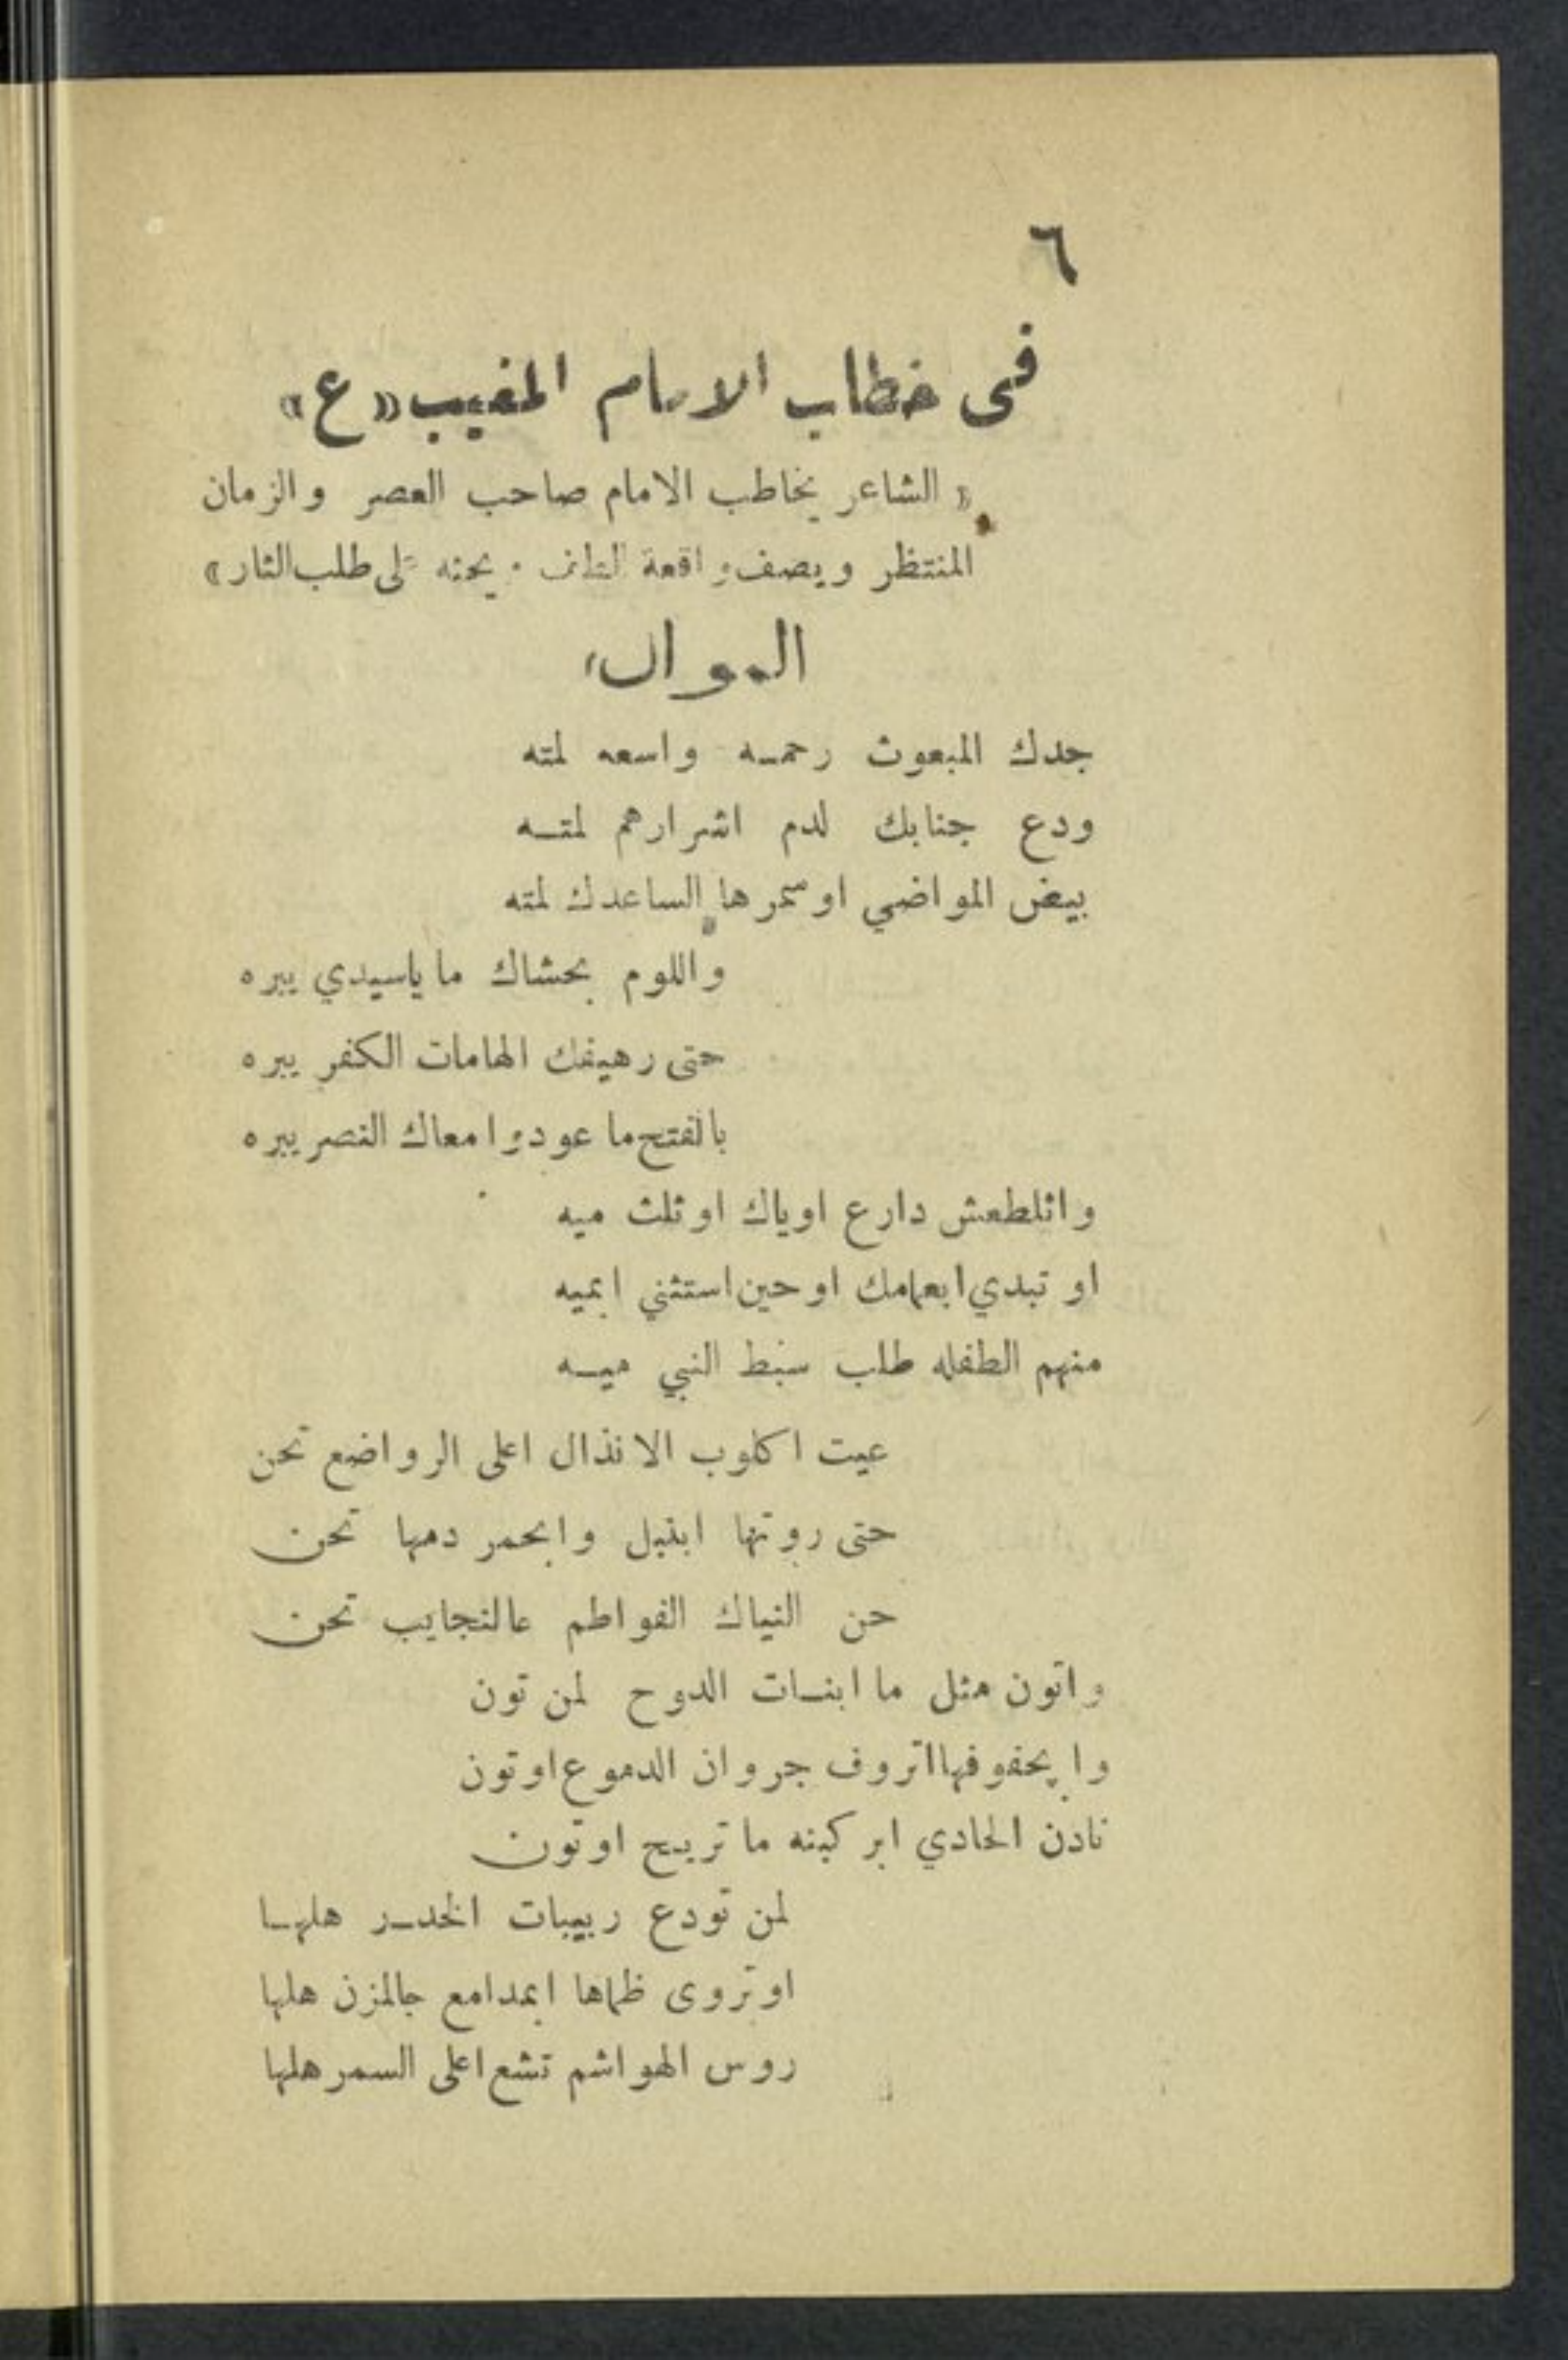 ٦
في خطاب الامام المغيب «ع»
« الشاعر يخاطب الامام صاحب العصر والزمان
المنتظر ويصف واقعة الطف ويحثه على طلب الثار »
الموال
جدك المبعوث رحمـه واسعه لمته
ودع جنابك لدم اشرارهم لمتـه
بيض المواضي او سمرها الساعدك لمته
واللوم بحشاك ما ياسيدي يبره
حتى رهيفك الهامات الكفر يبره
بالفتح ما عودوا معاك النصر يبره
واثلطعش دارع اوياك او ثلث ميه
او تبدي ابعمامك او حين استثني ابميه
منهم الطفله طلب سبط النبي ميـه
عيت اكلوب الانذال اعلى الرواضع تحن
حتى روتها ابنبل وابحمر دمها تحن
حن النياك الفواطم عالنجايب تحن
واتون مثل ما ابنـات الدوح لمن تون
وابحفوفها اتروف جروان الدموع اوتون
نادن الحادي ابركبنه ما تريح اوتون
لمن تودع ربيبات الخدـر هلهـا
اوتروى ظماها ابمدامع جالمزن هلها
روس الهواشم تشع اعلى السمر هلها